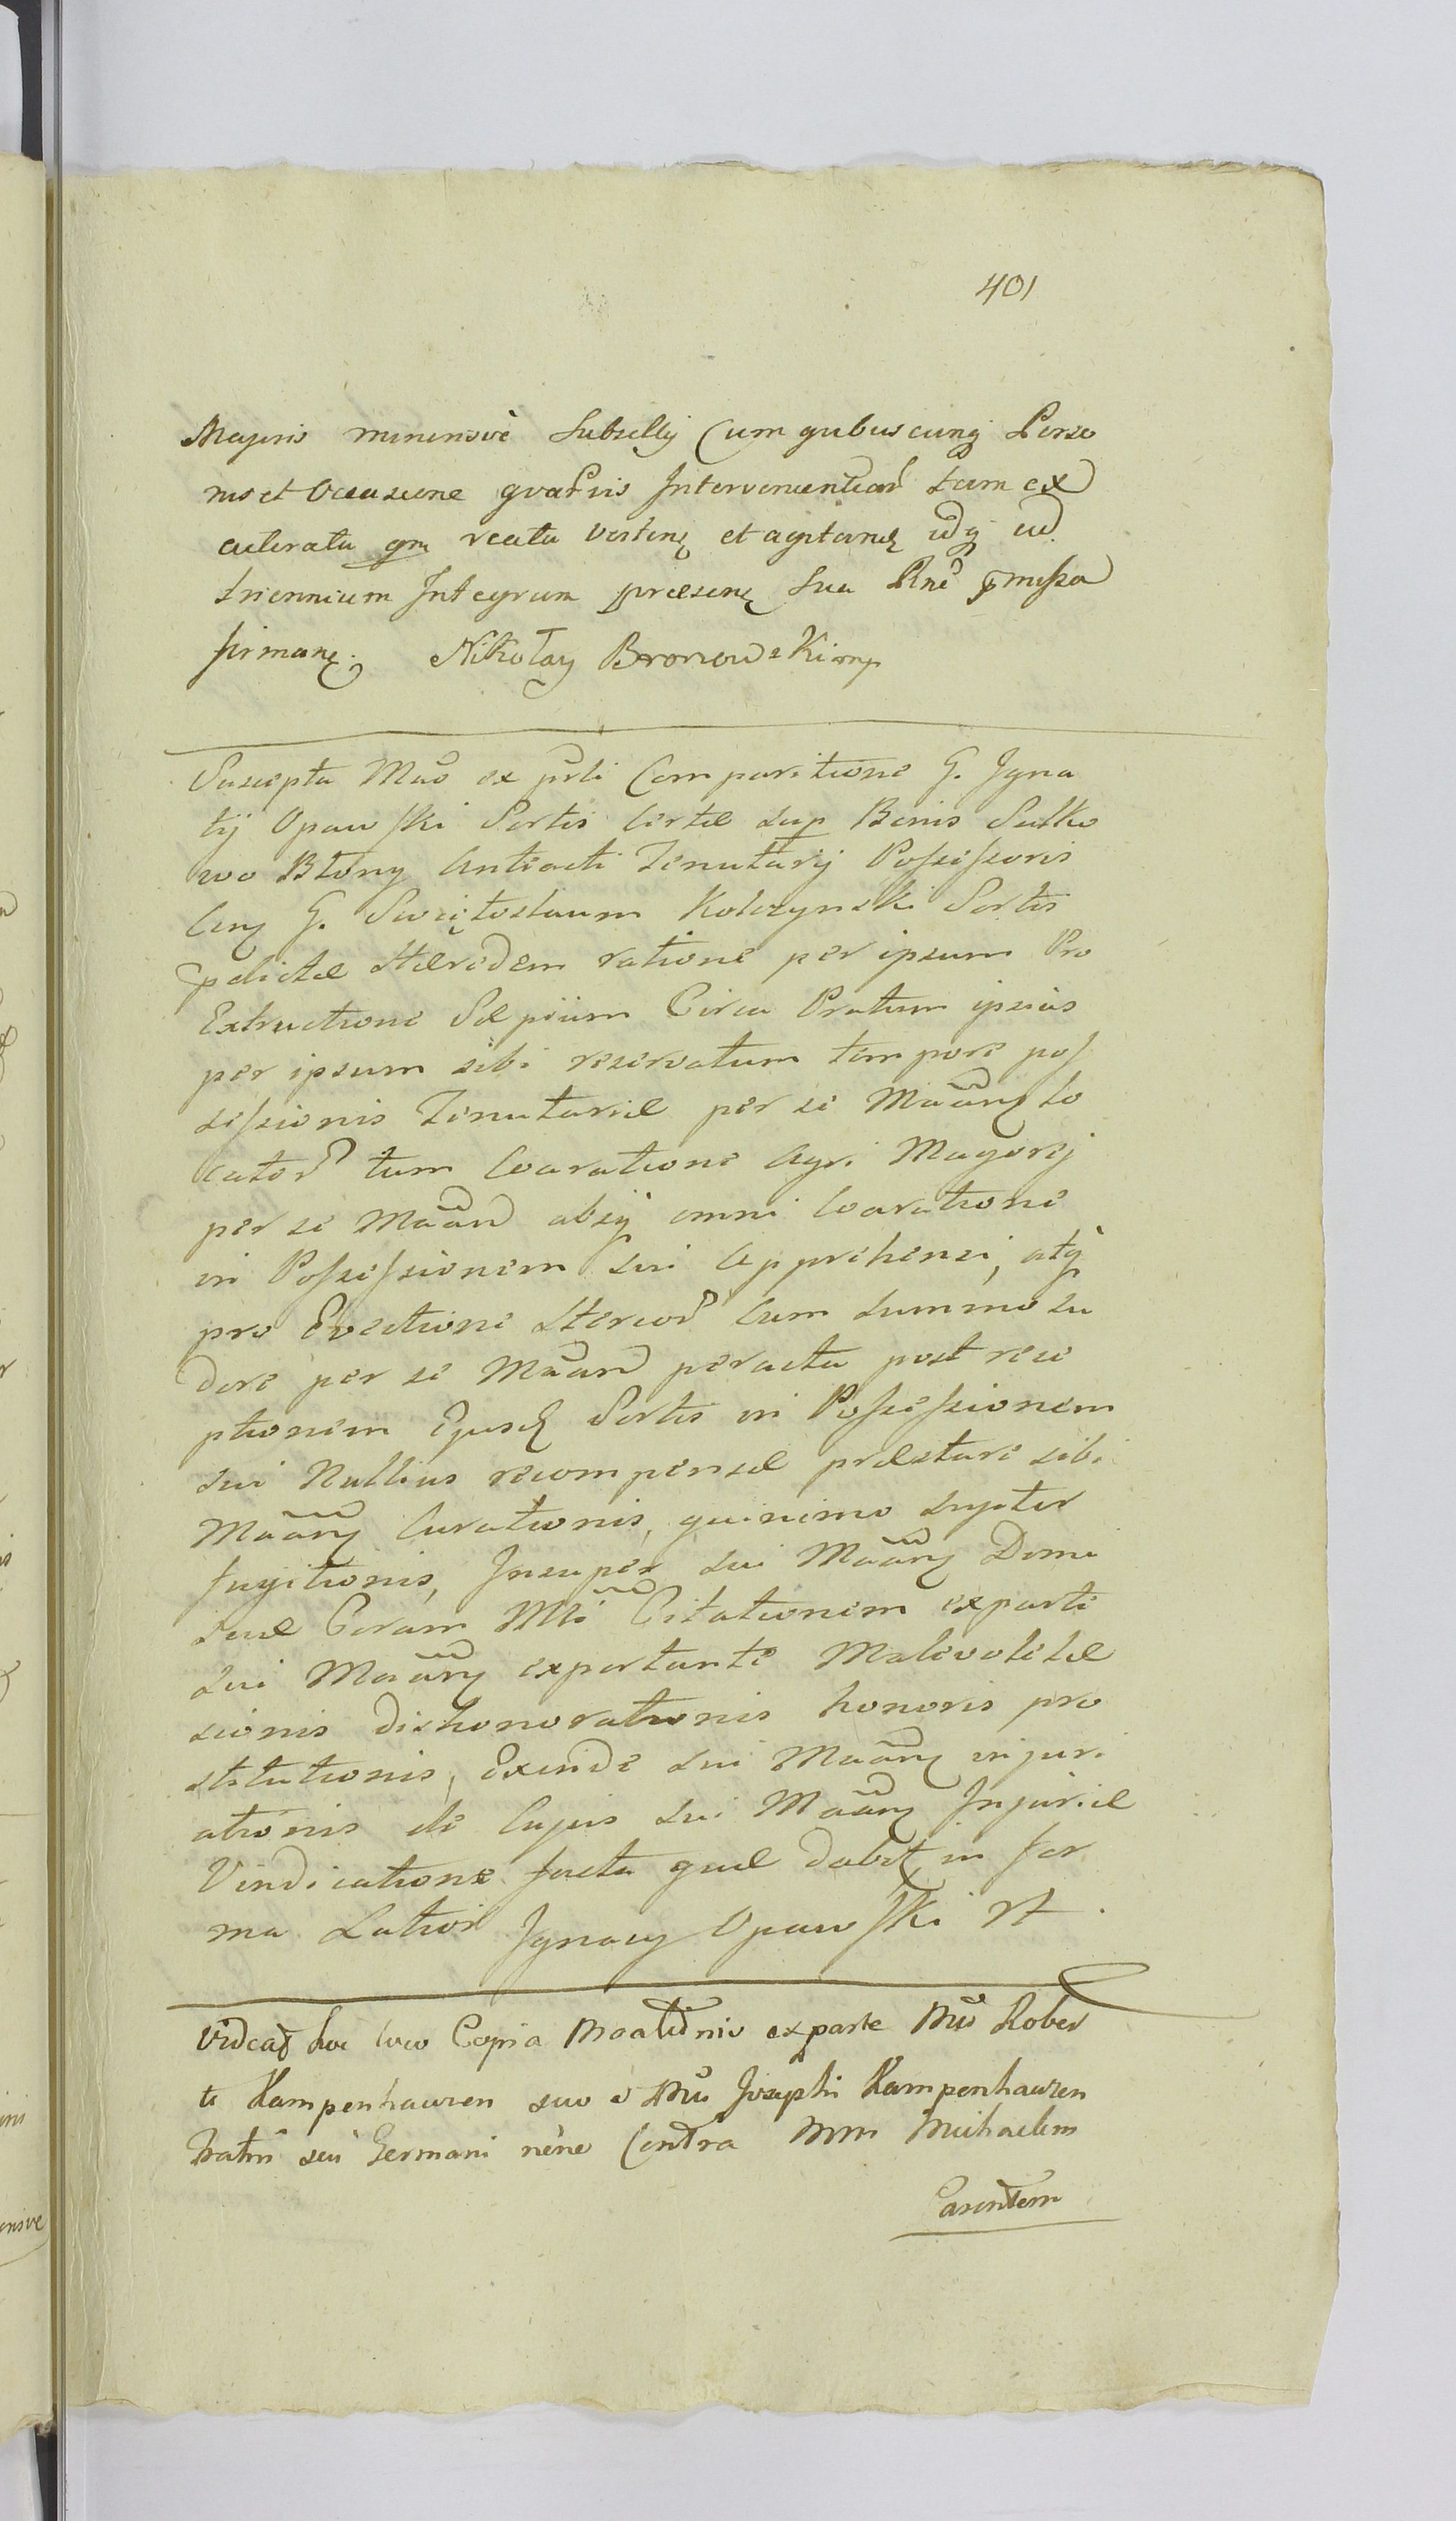 401
Majoris minorisvè Subsellij Cum quibuscunq Perso
nis et Occasione qvarvis Intervenientiar tam ex
acterata qm reatu vertenq et agitanq idq ad
triennium Integrum praesenq Sua Rne pmissa
firmanq. Nikołay Bronowski mp
Suscepta Mao ex prli Comparitione G. Igna
tij Opawski Sortis Certae sup Bonis Sułko
wo Błony Anteacti Tenutarij Possessoris
Cunq G. Swiętosłaum Kołczynski Sortis
pdictae Haeredem ratione per ipsum Pro
Extructione Saepium Circa Pratum ipsius
per ipsum sibi reservatum tempore pos
sessionis Tenutariae per se Maanq lo
cator tum Coaratione Agri Magorij
per se Maan absq omni Coaratione
in Possessionem sui Apprehensi, atq
pro Evectione Stercor cum summo su
dore per se Maan peracta post rece
ptionem Ejusd Sortis in Possessionem
sui Nullius recompensae praestare sibi
Maanq Curationis, quinimo supter
fugitionis, Insuper sui Maanq Domi
suae Coram Mli Citationem exparte
sui Maanq exportante Malevole lae
sionis dishonorationis honoris pro
stitutionis, Exinde sui Maanq injuri
ationis de Cujus sui Maanq Injuriae
Vindicatione facta quae dabit in for
ma Latior Ignacy Opawski
Videat hoc loco Copia Moationis exparte Mci Rober
ti Kampenhauzen suo e Mci Josephi Kampenhauzen
Fratris sui Germani nene Contra Mm Michaelem
Parentem